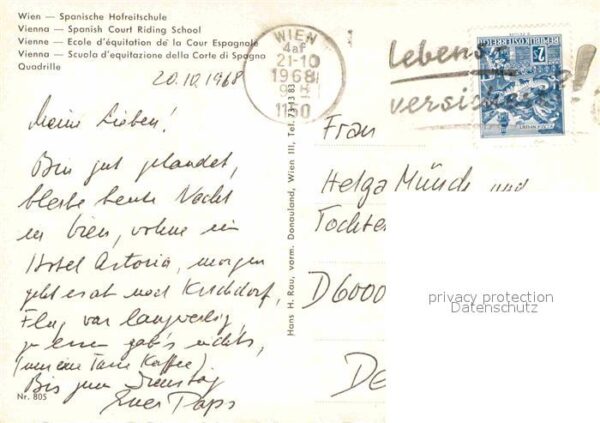 Wien — Spanische Hofreitschule
Vienna — Spanish Court Riding School
Vienne — Ecole d'équitation de la Cour Espagnole
Vienna — Scuola d'equitazione della Corte di Spagna
Quadrille
20.10.1968
Meine Lieben!
Bin gut gelandet,
bleibe heute Nacht
in Wien, wohne im
Hotel Astoria, morgen
geht es ab nach Kirchdorf,
Flug war langweilig,
zu essen gab's nichts,
(nur eine Tasse Kaffee)
Bis zum Dienstag
Euer Paps
Nr. 805
Hans H. Rau, vorm. Donauland, Wien III, Tel. 73 13 83
WIEN
4af
21-10
1968
1150
Lebens
versichert?!
REPUBLIK ÖSTERREICH
2
Frau
Helga Münch und
Tochter
D6000
DE
privacy protection
Datenschutz